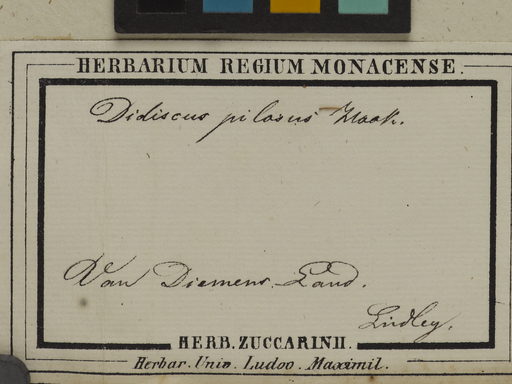 HERBARIUM REGIUM MONACENSE.
Didiscus pilosus Hook.
Van Diemens Land.
Lindley.
HERB. ZUCCARINII.
Herbar. Univ. Ludov. Maximil.